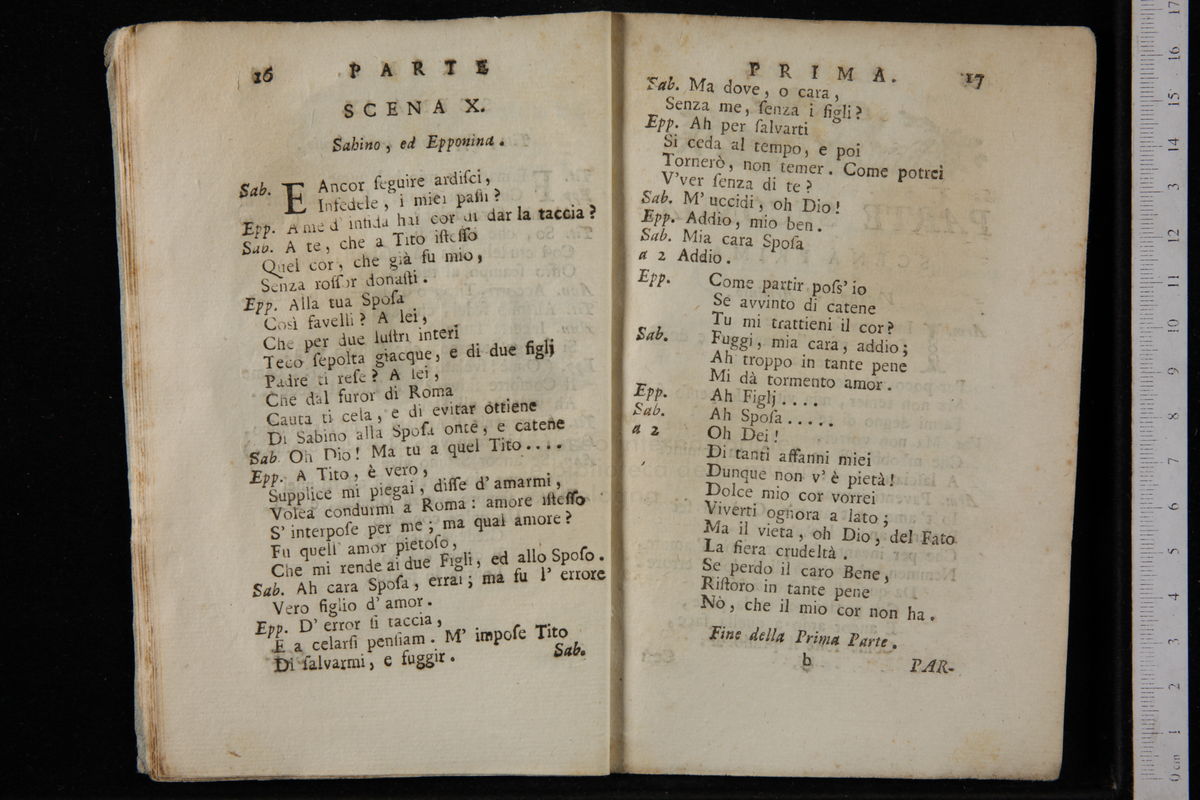 16 PARTE
SCENA X.
Sabino, ed Epponina.
Sab. E Ancor ſeguire ardiſci,
Infedele, i miei paſſi?
Epp. A me d' infida hai cor di dar la taccia?
Sab. A te, che a Tito iſteſſo
Quel cor, che già fu mio,
Senza roſſor donaſti.
Epp. Alla tua Spoſa
Così favelli? A lei,
Che per due luſtri interi
Teco ſepolta giacque, e di due figlj
Padre ti reſe? A lei,
Che dal furor di Roma
Cauta ti cela, e di evitar ottiene
Di Sabino alla Spoſa onte, e catene
Sab. Oh Dio! Ma tu a quel Tito....
Epp. A Tito, è vero,
Supplice mi piegai, diſſe d' amarmi,
Volea condurmi a Roma: amore iſteſſo
S' interpoſe per me; ma qual amore?
Fu quell' amor pietoſo,
Che mi rende ai due Figli, ed allo Spoſo.
Sab. Ah cara Spoſa, errai; ma fu l' errore
Vero figlio d' amor.
Epp. D' error ſi taccia,
E a celarſi penſiam. M' impoſe Tito
Di ſalvarmi, e fuggir. Sab.
PRIMA. 17
Sab. Ma dove, o cara,
Senza me, ſenza i figli?
Epp. Ah per ſalvarti
Si ceda al tempo, e poi
Tornerò, non temer. Come potrei
V'ver ſenza di te?
Sab. M' uccidi, oh Dio!
Epp. Addio, mio ben.
Sab. Mia cara Spoſa
a 2 Addio.
Epp. Come partir poſs' io
Se avvinto di catene
Tu mi trattieni il cor?
Sab. Fuggi, mia cara, addio;
Ah troppo in tante pene
Mi dà tormento amor.
Epp. Ah Figlj....
Sab. Ah Spoſa.....
a 2 Oh Dei!
Di tanti affanni miei
Dunque non v' è pietà!
Dolce mio cor vorrei
Viverti ognora a lato;
Ma il vieta, oh Dio, del Fato
La fiera crudeltà.
Se perdo il caro Bene,
Riſtoro in tante pene
Nò, che il mio cor non ha.
Fine della Prima Parte.
b PAR-
0 cm 1 2 3 4 5 6 7 8 9 10 11 12 13 14 15 16 17